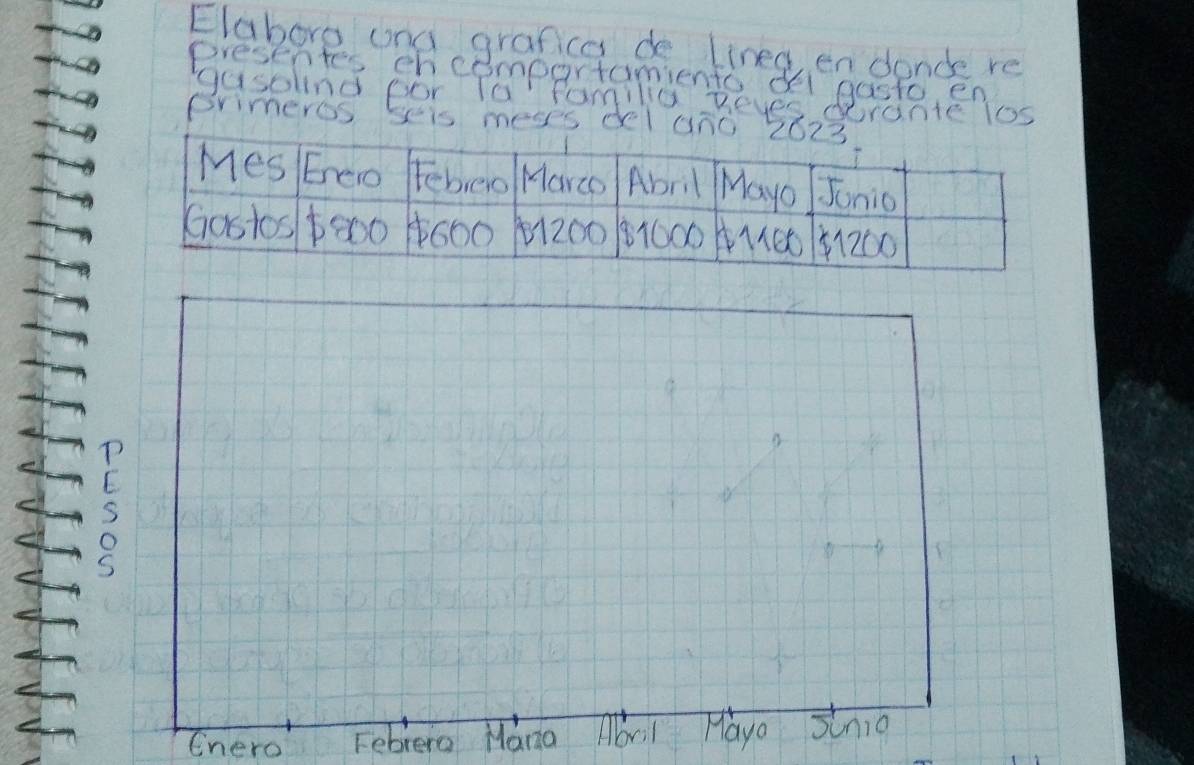 Elabora una grafica de linea, en donde re
presentes en comportamiento del gasto en
gasolina por la familia Reyes durante los
primeros seis meses del año 2023.
Mes Enero Febrero Marzo Abril Mayo Junio
Gastos $800 $600 $1200 $1000 $1100 $1200
PESOS
Enero Febrero Marzo Abril Mayo Junio